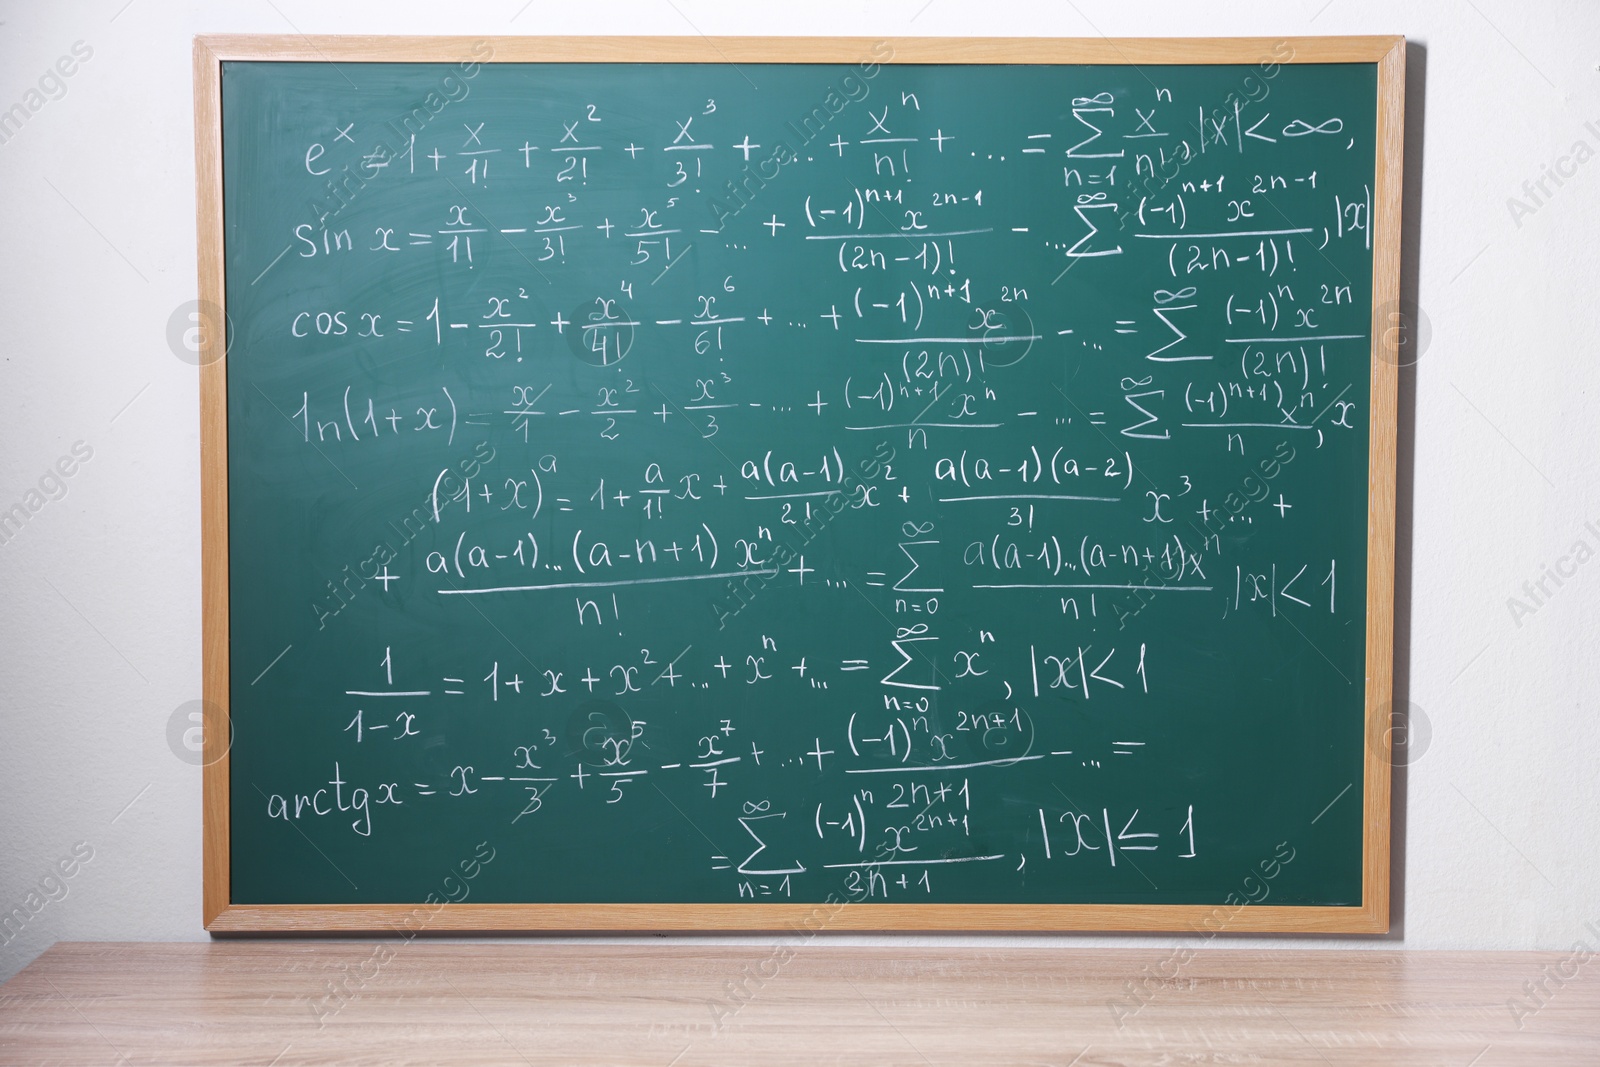 e^x = 1 + x/1! + x^2/2! + x^3/3! + ... + x^n/n! + ... = ∑_{n=1}^{∞} x^n/n!, |x| < ∞,
sin x = x/1! - x^3/3! + x^5/5! - ... + (-1)^{n+1} x^{2n-1}/(2n-1)! - ... ∑^{∞} (-1)^{n+1} x^{2n-1}/(2n-1)!, |x|
cos x = 1 - x^2/2! + x^4/4! - x^6/6! + ... + (-1)^{n+1} x^{2n}/(2n)! - ... = ∑^{∞} (-1)^n x^{2n}/(2n)!
ln(1+x) = x/1 - x^2/2 + x^3/3 - ... + (-1)^{n+1} x^n/n - ... = ∑^{∞} (-1)^{n+1} x^n/n, x
(1+x)^a = 1 + a/1! x + a(a-1)/2! x^2 + a(a-1)(a-2)/3! x^3 + ... +
+ a(a-1)...(a-n+1) x^n/n! + ... = ∑_{n=0}^{∞} a(a-1)...(a-n+1)x^n/n!, |x| < 1
1/(1-x) = 1 + x + x^2 + ... + x^n + ... = ∑_{n=0}^{∞} x^n, |x| < 1
arctg x = x - x^3/3 + x^5/5 - x^7/7 + ... + (-1)^n x^{2n+1}/2n+1 - ... =
= ∑_{n=1}^{∞} (-1)^n x^{2n+1}/2n+1, |x| ≤ 1
Africa Images